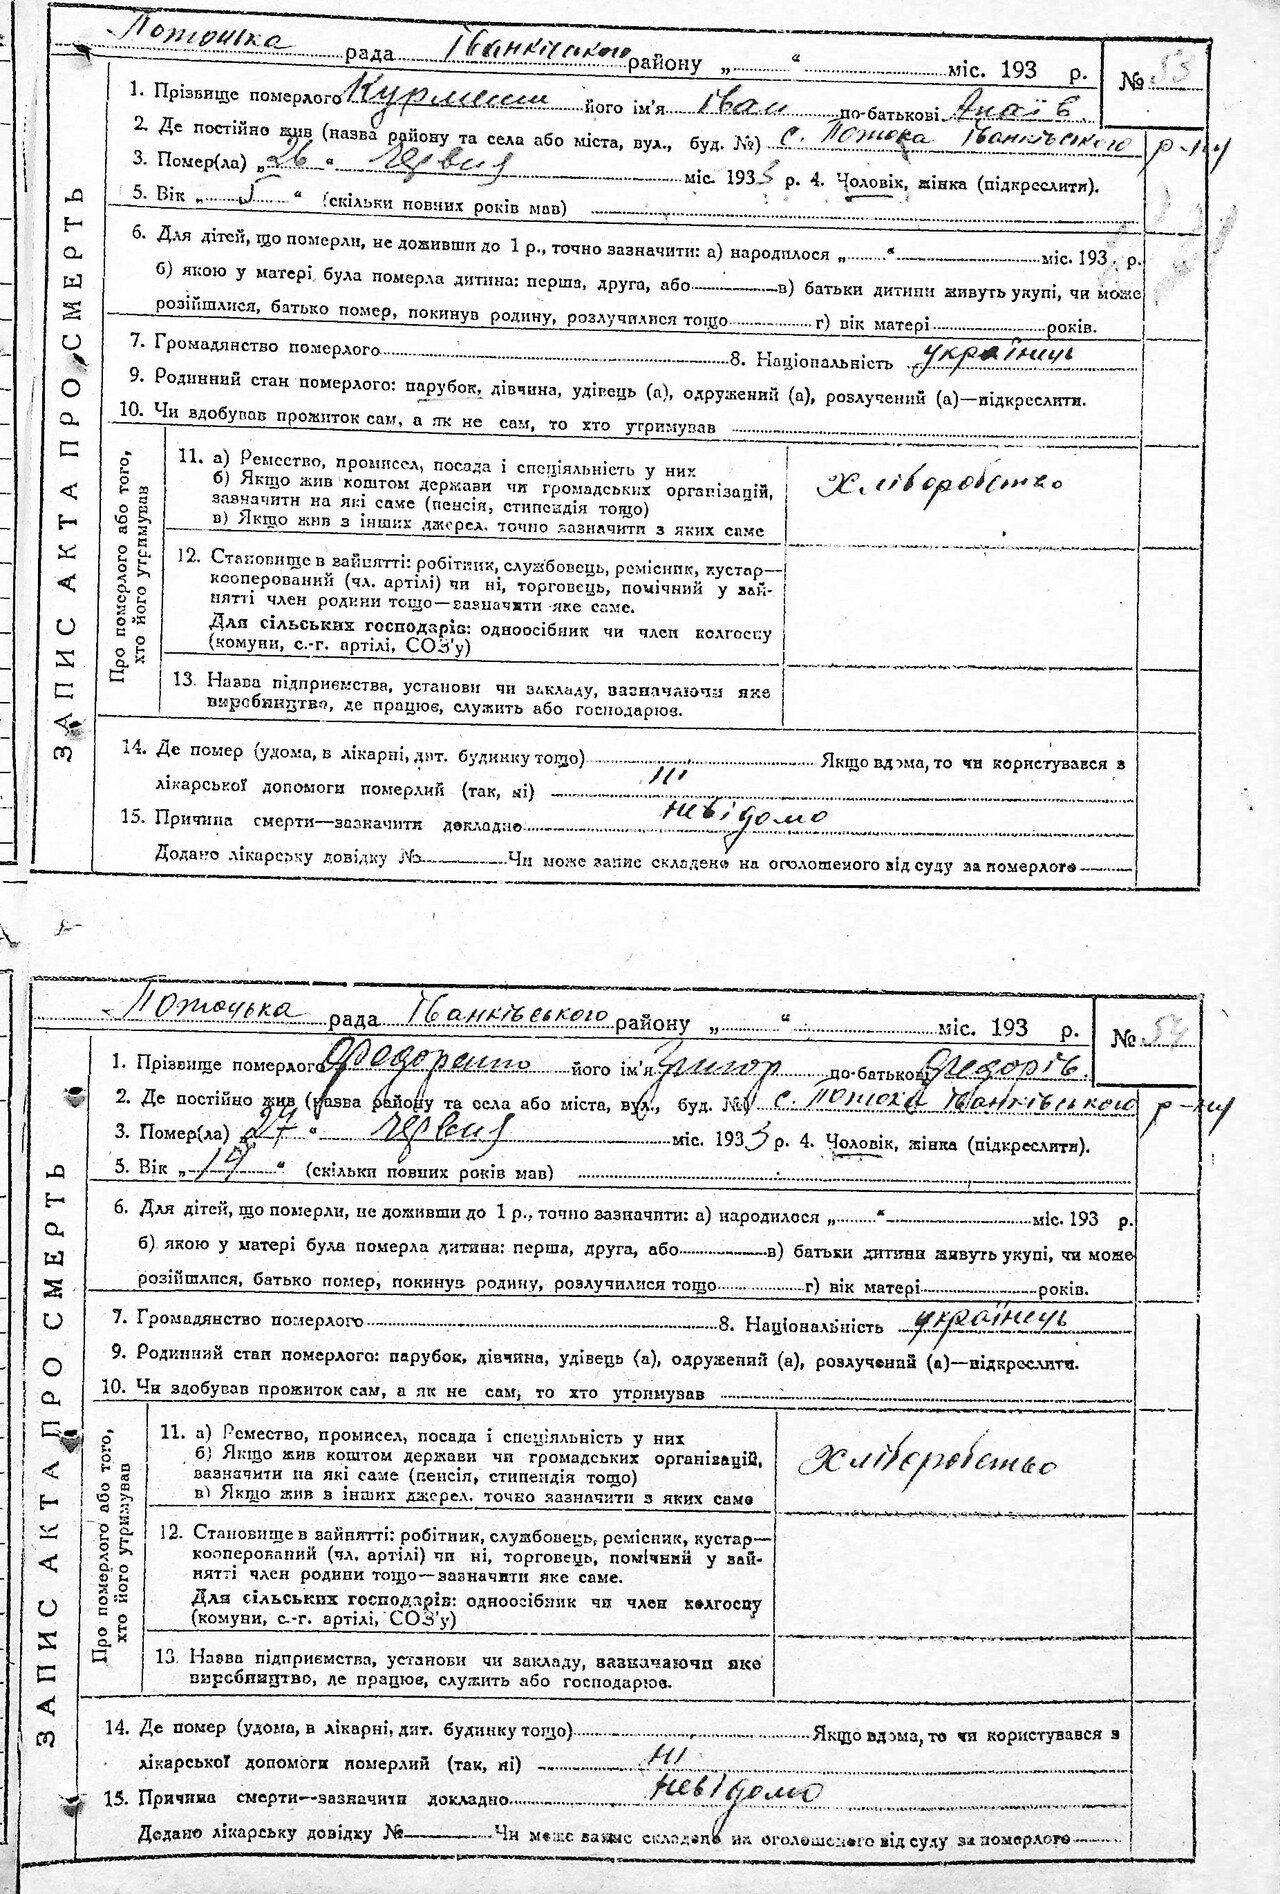 Потоцька рада Іванківського району „ “ міс. 193 р. № 53
1. Прізвище померлого його ім'я Іван по-батькові
2. Де постійно жив (назва району та села або міста, вул., буд. №) с. Потока Іванківського р-ну
3. Помер(ла) „26“ червня міс. 1933 р. 4. Чоловік, жінка (підкреслити).
5. Вік „ 5 “ (скільки повних років мав)
6. Для дітей, що померли, не доживши до 1 р., точно зазначити: а) народилося „ “ міс. 193 р.
б) якою у матері була померла дитина: перша, друга, або в) батьки дитини живуть укупі, чи може
розійшлися, батько помер, покинув родину, розлучилися тощо г) вік матері років.
7. Громадянство померлого 8. Національність українець
9. Родинний стан померлого: парубок, дівчина, удівець (а), одружений (а), розлучений (а)—підкреслити.
10. Чи здобував прожиток сам, а як не сам, то хто утримував
ЗАПИС АКТА ПРО СМЕРТЬ
Про померлого або того, хто його утримував
11. а) Ремество, промисел, посада і спеціяльність у них
б) Якщо жив коштом держави чи громадських організацій,
зазначити на які саме (пенсія, стипендія тощо)
в) Якщо жив з інших джерел, точно зазначити з яких саме
Хліборобство
12. Становище в зайнятті: робітник, службовець, ремісник, кустар—
кооперований (чл. артілі) чи ні, торговець, помічний у зай-
нятті член родини тощо—зазначити яке саме.
Для сільських господарів: одноосібник чи член колгоспу
(комуни, с.-г. артілі, СОЗ'у)
13. Назва підприємства, установи чи закладу, зазначаючи яке
виробництво, де працює, служить або господарює.
14. Де помер (удома, в лікарні, дит. будинку тощо) Якщо вдома, то чи користувався з
лікарської допомоги померлий (так, ні) ні
15. Причина смерти—зазначити докладно невідомо
Додано лікарську довідку № Чи може запис складено на оголошеного від суду за померлого
Потоцька рада Іванківського району „ “ міс. 193 р. № 54
1. Прізвище померлого Федоренко його ім'я Григор по-батькові Федорів.
2. Де постійно жив (назва району та села або міста, вул., буд. №) с. Потока Іванківського р-ну
3. Помер(ла) „27“ червня міс. 1933 р. 4. Чоловік, жінка (підкреслити).
5. Вік „ 14 “ (скільки повних років мав)
6. Для дітей, що померли, не доживши до 1 р., точно зазначити: а) народилося „ “ міс. 193 р.
б) якою у матері була померла дитина: перша, друга, або в) батьки дитини живуть укупі, чи може
розійшлися, батько помер, покинув родину, розлучилися тощо г) вік матері років.
7. Громадянство померлого 8. Національність українець
9. Родинний стан померлого: парубок, дівчина, удівець (а), одружений (а), розлучений (а)—підкреслити.
10. Чи здобував прожиток сам, а як не сам, то хто утримував
ЗАПИС АКТА ПРО СМЕРТЬ
Про померлого або того, хто його утримував
11. а) Ремество, промисел, посада і спеціяльність у них
б) Якщо жив коштом держави чи громадських організацій,
зазначити на які саме (пенсія, стипендія тощо)
в) Якщо жив в інших джерел, точно зазначити з яких саме
Хліборобство
12. Становище в зайнятті: робітник, службовець, ремісник, кустар—
кооперований (чл. артілі) чи ні, торговець, помічний у зай-
нятті член родини тощо—зазначити яке саме.
Для сільських господарів: одноосібник чи член колгоспу
(комуни, с.-г. артілі, СОЗ'у)
13. Назва підприємства, установи чи закладу, зазначаючи яке
виробництво, де працює, служить або господарює.
14. Де помер (удома, в лікарні, дит. будинку тощо) Якщо вдома, то чи користувався з
лікарської допомоги померлий (так, ні) ні
15. Причина смерти—зазначити докладно невідомо
Додано лікарську довідку № Чи може запис складено на оголошеного від суду за померлого